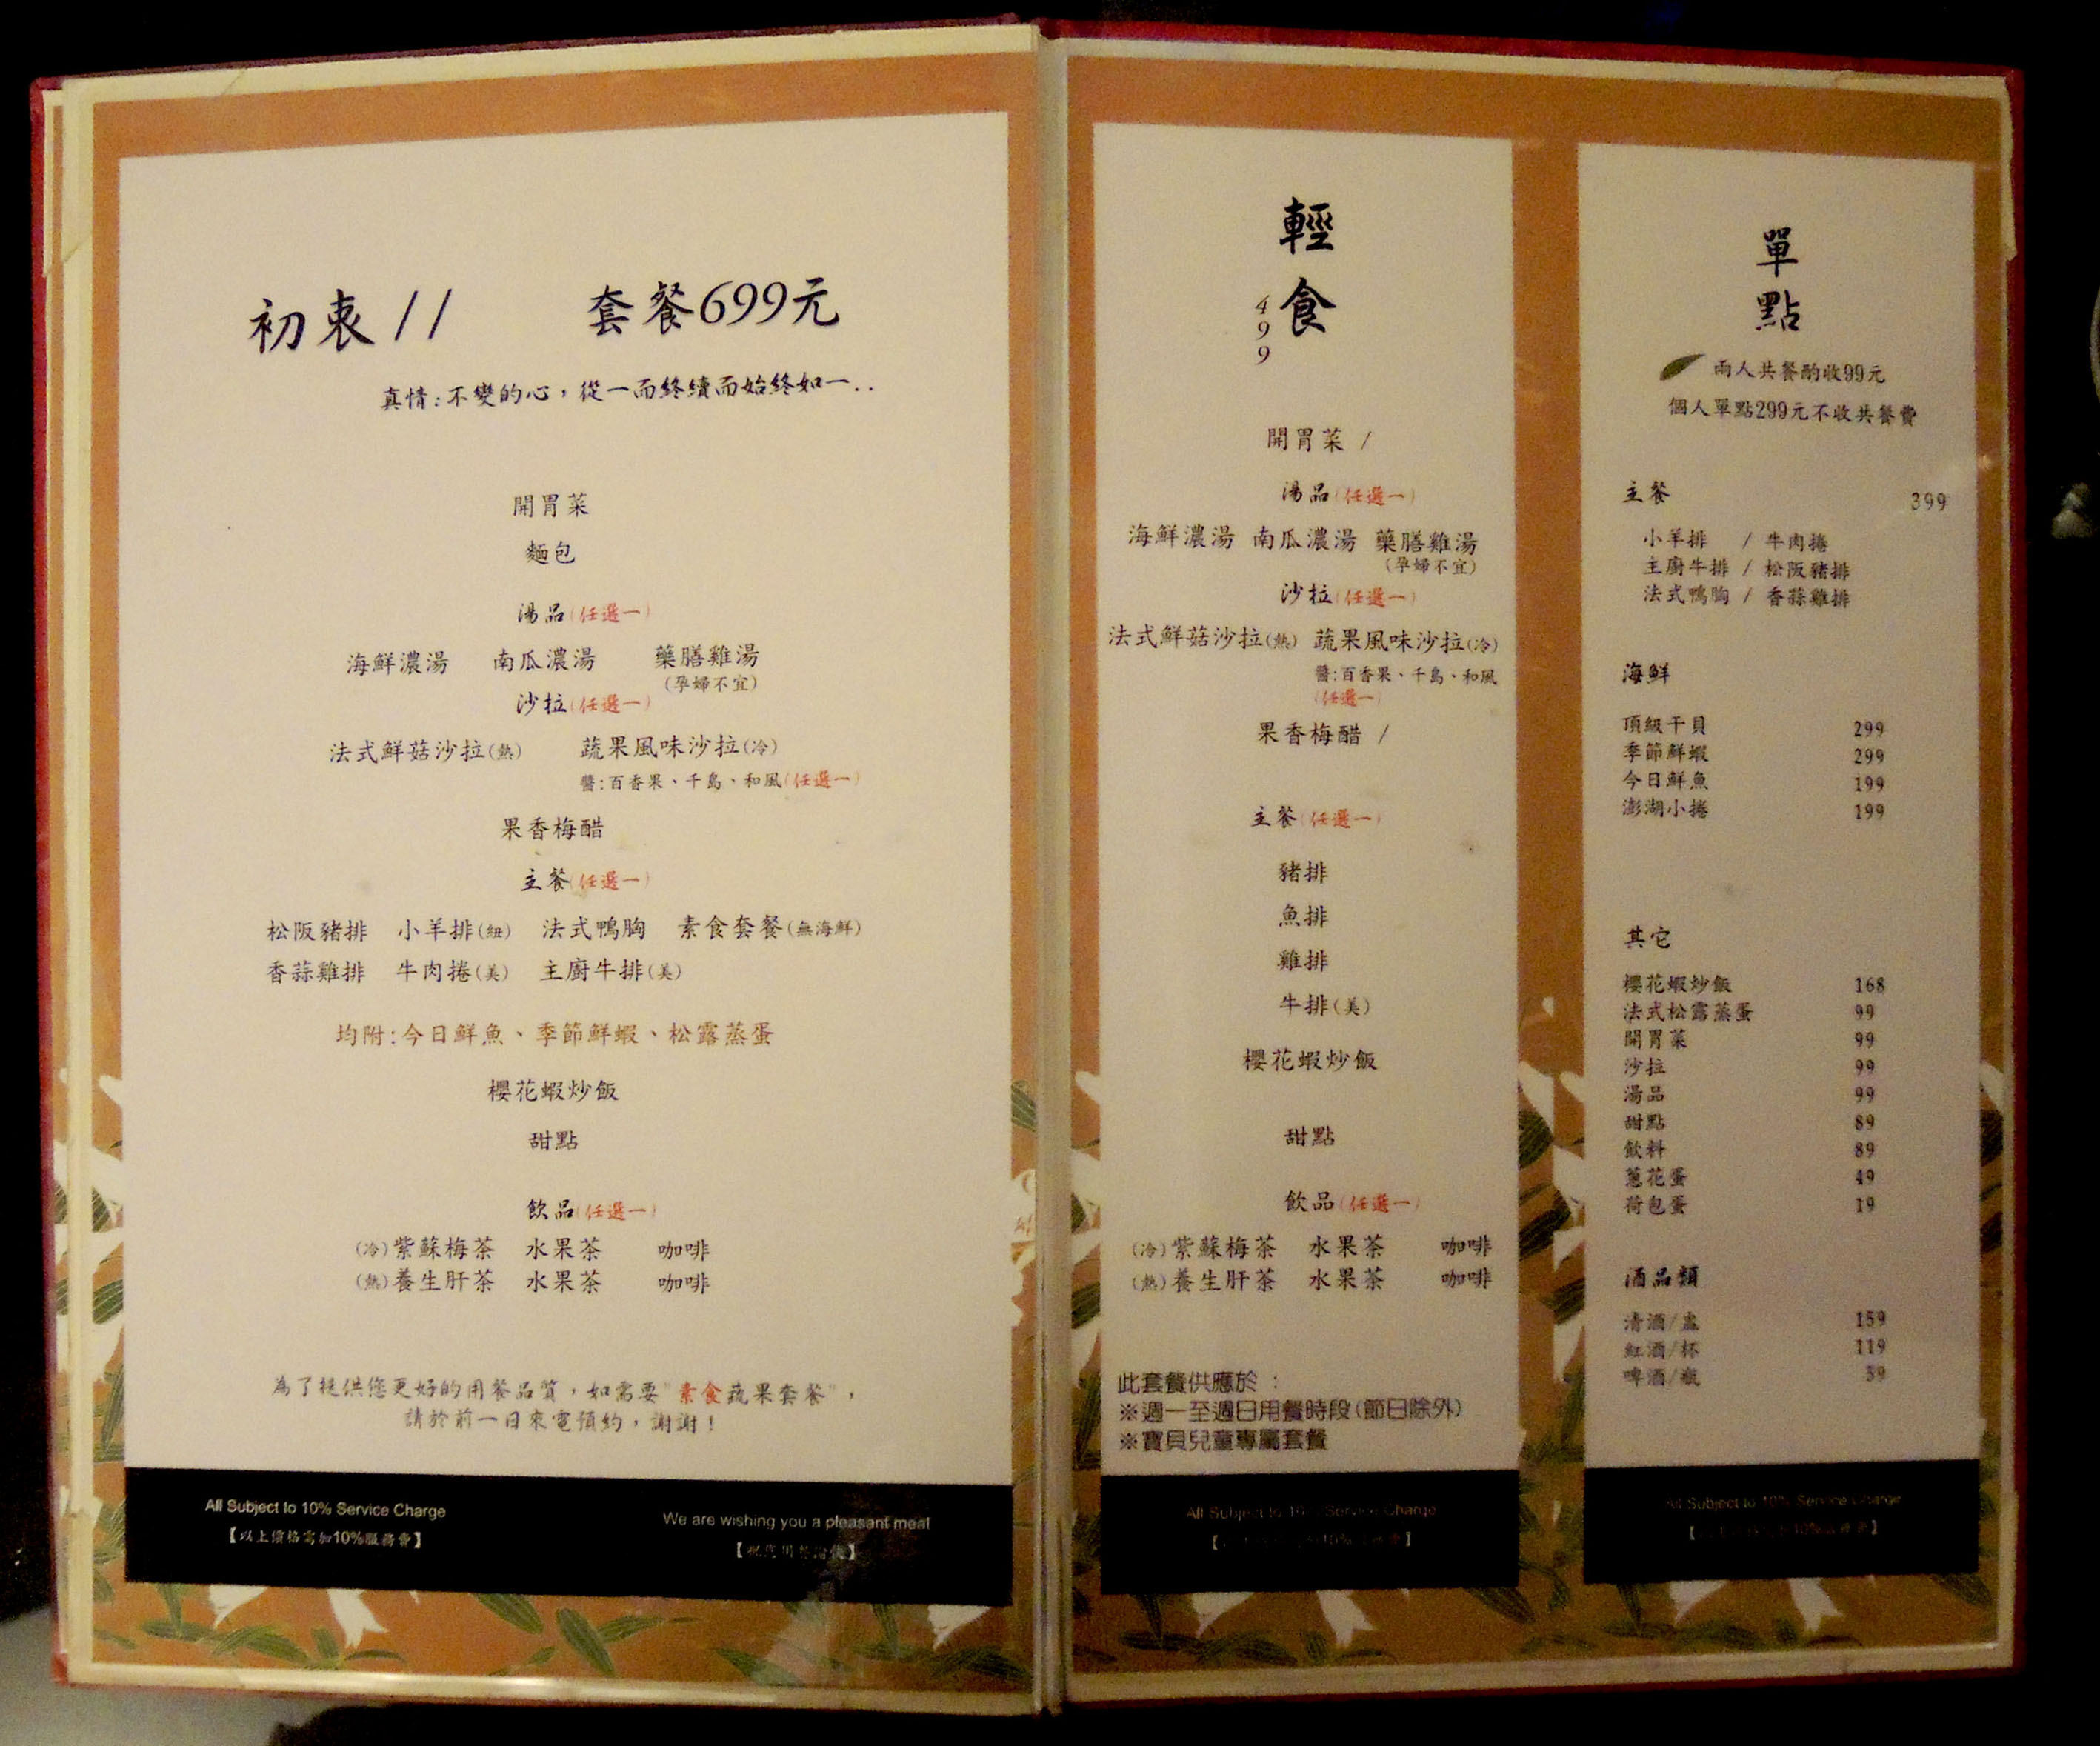 初衷// 套餐699元
真情:不變的心，從一而終續而始終如一..
開胃菜
麵包
湯品(任選一)
海鮮濃湯 南瓜濃湯 藥膳雞湯
(孕婦不宜)
沙拉(任選一)
法式鮮菇沙拉(熱) 蔬果風味沙拉(冷)
醬:百香果、千島、和風(任選一)
果香梅醋
主餐(任選一)
松阪豬排 小羊排(紐) 法式鴨胸 素食套餐(無海鮮)
香蒜雞排 牛肉捲(美) 主廚牛排(美)
均附:今日鮮魚、季節鮮蝦、松露蒸蛋
櫻花蝦炒飯
甜點
飲品(任選一)
(冷)紫蘇梅茶 水果茶 咖啡
(熱)養生肝茶 水果茶 咖啡
為了提供您更好的用餐品質，如需要"素食蔬果套餐"，
請於前一日來電預約，謝謝！
All Subject to 10% Service Charge
【以上價格需加10%服務費】
We are wishing you a pleasant meal
【祝您用餐愉快】
輕食
499
開胃菜 /
湯品(任選一)
海鮮濃湯 南瓜濃湯 藥膳雞湯
(孕婦不宜)
沙拉(任選一)
法式鮮菇沙拉(熱) 蔬果風味沙拉(冷)
醬:百香果、千島、和風
(任選一)
果香梅醋 /
主餐(任選一)
豬排
魚排
雞排
牛排(美)
櫻花蝦炒飯
甜點
飲品(任選一)
(冷)紫蘇梅茶 水果茶 咖啡
(熱)養生肝茶 水果茶 咖啡
此套餐供應於：
※週一至週日用餐時段(節日除外)
※寶貝兒童專屬套餐
All Subject to 10% Service Charge
單點
兩人共餐酌收99元
個人單點299元不收共餐費
主餐 399
小羊排 / 牛肉捲
主廚牛排 / 松阪豬排
法式鴨胸 / 香蒜雞排
海鮮
頂級干貝 299
季節鮮蝦 299
今日鮮魚 199
澎湖小捲 199
其它
櫻花蝦炒飯 168
法式松露蒸蛋 99
開胃菜 99
沙拉 99
湯品 99
甜點 89
飲料 89
蔥花蛋 49
荷包蛋 19
酒品類
清酒/盅 159
紅酒/杯 119
啤酒/瓶
All Subject to 10% Service Charge